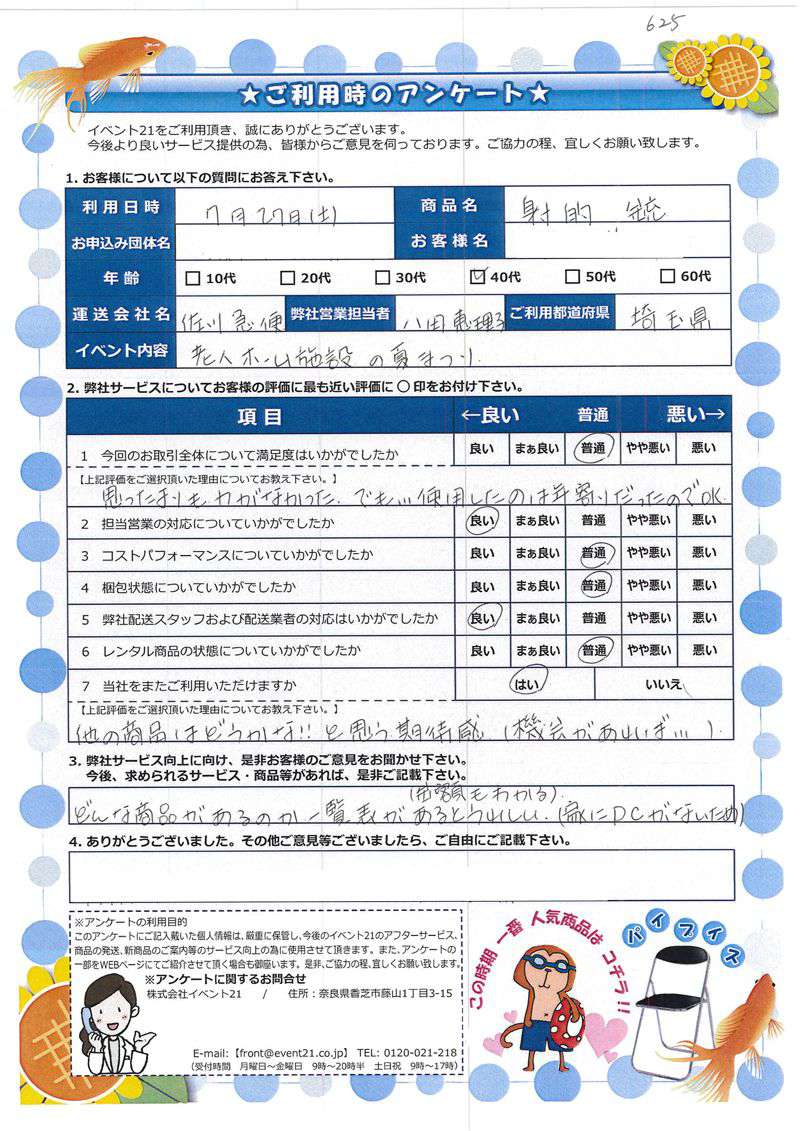 625
★ご利用時のアンケート★
イベント21をご利用頂き、誠にありがとうございます。
今後より良いサービス提供の為、皆様からご意見を伺っております。ご協力の程、宜しくお願い致します。
1. お客様について以下の質問にお答え下さい。
利用日時 7月27日(土) 商品名 射的 銃
お申込み団体名 お客様名
年齢 10代 20代 30代 40代 50代 60代
運送会社名 佐川急便 弊社営業担当者 八田恵理子 ご利用都道府県 埼玉県
イベント内容 老人ホーム施設の夏まつり
2. 弊社サービスについてお客様の評価に最も近い評価に〇印をお付け下さい。
項目 ←良い 普通 悪い→
1 今回のお取引全体について満足度はいかがでしたか 良い まぁ良い 普通 やや悪い 悪い
【上記評価をご選択頂いた理由についてお教え下さい。】
思ったよりもわがなかった。でも…使用したのは年寄りだったのでOK.
2 担当営業の対応についていかがでしたか 良い まぁ良い 普通 やや悪い 悪い
3 コストパフォーマンスについていかがでしたか 良い まぁ良い 普通 やや悪い 悪い
4 梱包状態についていかがでしたか 良い まぁ良い 普通 やや悪い 悪い
5 弊社配送スタッフおよび配送業者の対応はいかがでしたか 良い まぁ良い 普通 やや悪い 悪い
6 レンタル商品の状態についていかがでしたか 良い まぁ良い 普通 やや悪い 悪い
7 当社をまたご利用いただけますか はい いいえ
【上記評価をご選択頂いた理由についてお教え下さい。】
他の商品はどうかな!!と思う期待感 (機会があれば…).
3. 弊社サービス向上に向け、是非お客様のご意見をお聞かせ下さい。
今後、求められるサービス・商品等があれば、是非ご記載下さい。
(金額もわかる).
どんな商品があるのか一覧表があるとうれしい.(家にPCがないため)
4. ありがとうございました。その他ご意見等ございましたら、ご自由にご記載下さい。
※アンケートの利用目的
このアンケートにご記入戴いた個人情報は、厳重に保管し、今後のイベント21のアフターサービス、
商品の発送、新商品のご案内等のサービス向上の為に使用させて頂きます。また、アンケートの
一部をWEBページにてご紹介させて頂く場合も御座います。是非、ご協力の程、宜しくお願い致します。
※アンケートに関するお問合せ
株式会社イベント21 / 住所：奈良県香芝市藤山1丁目3-15
E-mail:【front@event21.co.jp】 TEL: 0120-021-218
(受付時間 月曜日～金曜日 9時～20時半 土日祝 9時～17時)
この時期 一番 人気商品は コチラ!!
パイプイス